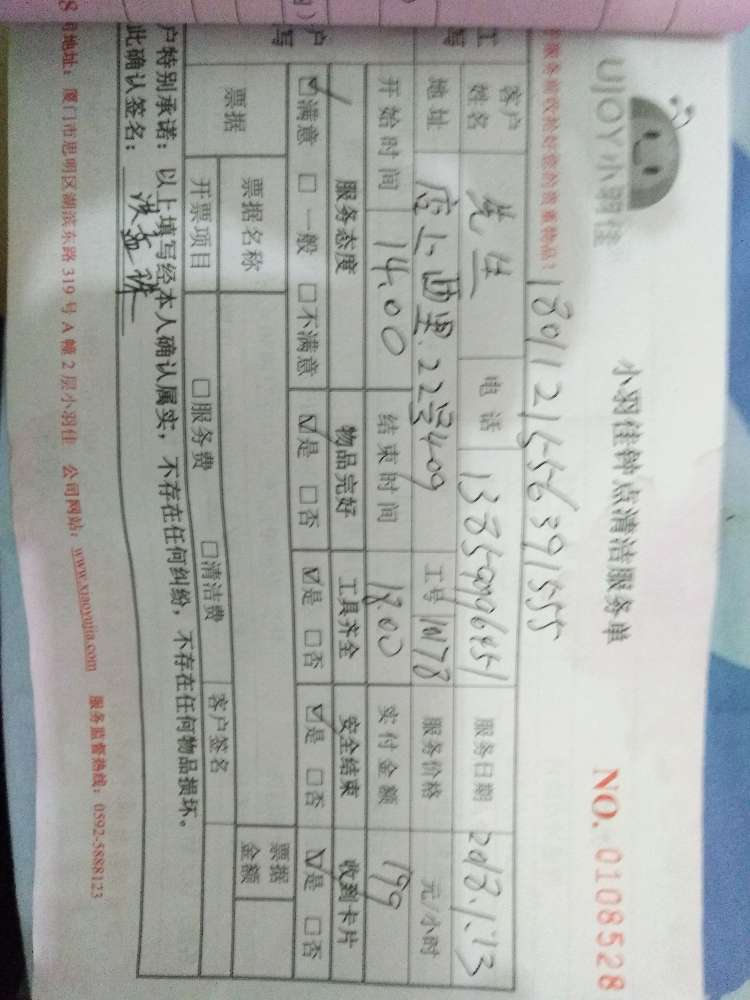 UJOY小羽佳
小羽佳钟点清洁服务单
NO. 0108528
服务前收拾好您的贵重物品!
1801121556391555
客户姓名 先生 电话 服务日期 2018.1.13
地址 店上西里.22号409 工号 服务价格 元/小时
开始时间 14.00 结束时间 18.00 实付金额 199
服务态度 物品完好 工具齐全 安全结束 收到卡片
☑满意 □一般 □不满意 ☑是 □否 ☑是 □否 ☑是 □否 ☑是 □否
票据 票据名称 票据金额
开票项目 □服务费 □清洁费 客户签名
户特别承诺:以上填写经本人确认属实,不存在任何纠纷,不存在任何物品损坏。
此确认签名:
司地址:厦门市思明区湖滨东路 319 号 A 幢 2 层小羽佳 公司网站:www.xiaoyujia.com 服务监督热线:0592-5888123